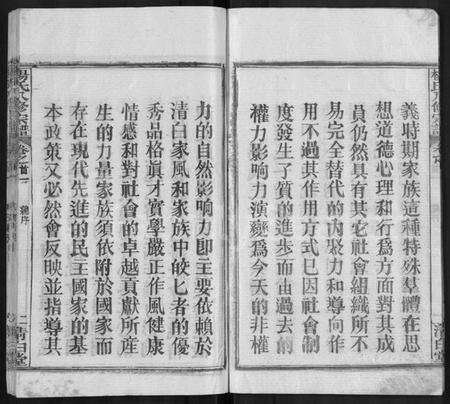 義時期家族這種特殊羣體在思
想道德心理和行爲方面對其成
員仍然具有其它社會組織所不
易完全替代的内聚力和導向作
用不過其作用方式已因社會制
度發生了質的進步而由過去的
權力影响力演變爲今天的非權
力的自然影响力即主要依賴於
清白家風和家族中的佼佼者的優
秀品格眞才實學嚴正作風健康
情感和對社會的卓越貢獻所產
生的力量家族須依附於國家而
存在現代先進的民主國家的基
本政策又必然會反映並指導其
楊氏修宗譜
卷之首
清白堂